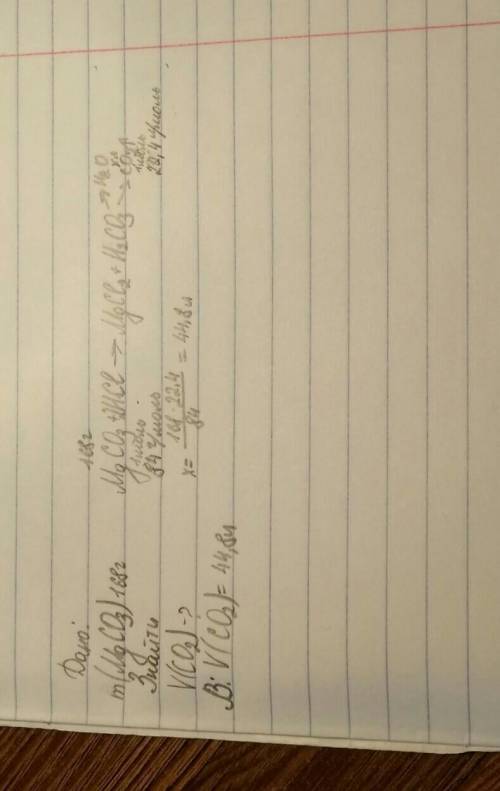 Дано:
m(MgCO3) 168г
Знайти
V(CO2) - ?
168г
MgCO3 + 2HCl → MgCl2 + H2CO3 → H2O
→ CO2↑
1 моль
84 г/моль
xл
1 моль
22,4 л/моль
x = 168 · 22,4 / 84 = 44,8л
В: V(CO2) = 44,8л